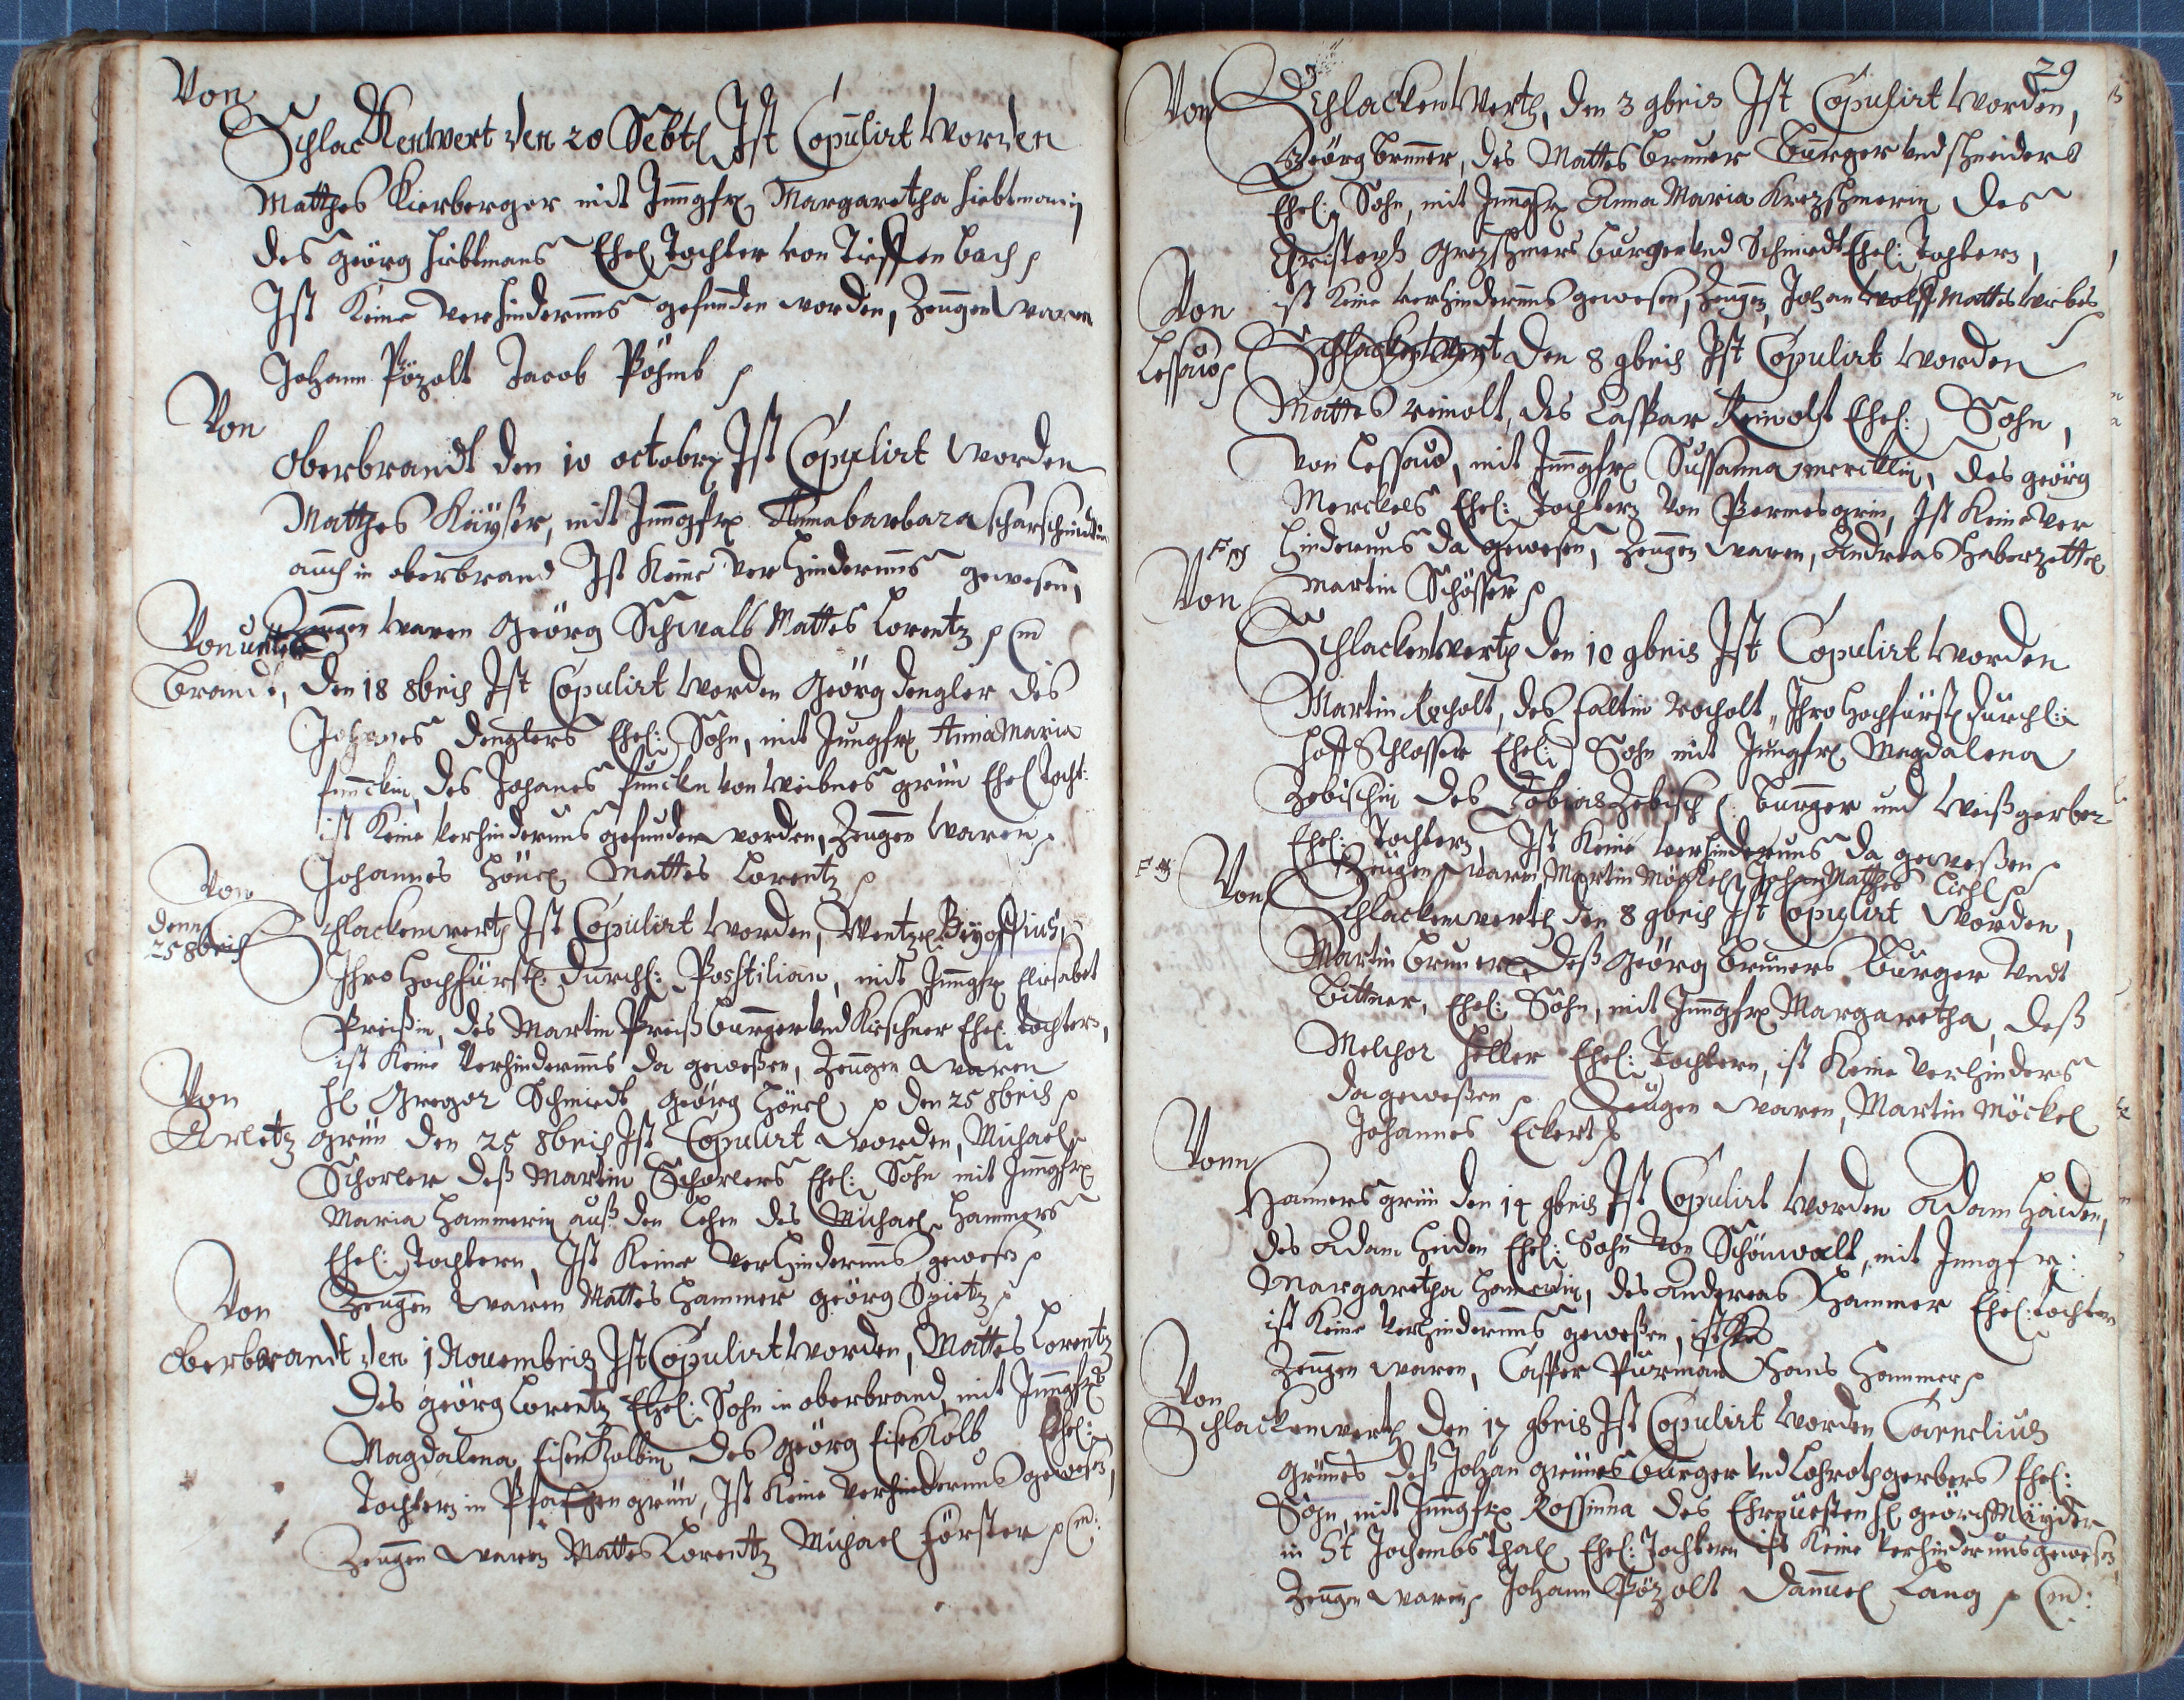 Von
Schlackenwert den 20 Sebtl Ist Copulirt worden
Matthes Kierberger mit Jungfr Margaretha hiebtmanin
des Georg hiebtmans Ehel Tochter von Tieffen bach
Ist Keine verhindernus gefunden worden, Zeugen waren
Johann Pözolt Jacob Böhmb
Von
Oberbrandt den 10 octobr Ist Copulirt worden
Matthes Käyser, mit Jungfr Annabarbara scharschmidtin
auch in oberbrand Ist Keine Verhindernus gewesen,
Zeugen waren Georg Schwalb Mattes Lorentz
Von unter
brandt, den 18 8bris Ist Copulirt worden Georg dengler des
Johanes denglers Ehel: Sohn, mit Jungfr Anna Maria
funckin, des Johanes funckn von Weibnes grün Ehel Tocht:
ist Keine verhindernus gefunden worden, Zeugen waren
Johannes Hönel Mattes Lorentz
Von
denn
25 8bris
Schlackenwerth Ist Copulirt worden, Wentzel
Ihro Hochfürstl: Durchl: Posstilian, mit Jungfr Eliesabet
Preißin, des Martin Preiß burger und Kirschner Ehel: Tochter,
ist Keine Verhindernus da geweßen, Zeugen waren
Hl Gregor Schmiedt Georg Hönel den 25 8bris
Von
Arletz grün den 25 8bris Ist Copulirt worden, Michael
Schorler deß Martin Schorlers Ehel: Sohn mit Jungfr
Maria Hammerin auß den Lehen des Michael Hammers
Ehel: Tochtern, Ist Keine verhindernus gewesen
Zeugen waren Mattes Hammer georg Spietz
Von
Oberbrandt den 1 Novembris Ist Copulirt worden, Mattes Lorentz
des georg Lorentz Ehel: Sohn in oberbrand, mit Jungfr
Magdalena EisenKolbin des georg EisenKolb Ehel:
Tochter in Pfaffengrün, Ist Keine verhindernus gewesen,
Zeugen waren Mattes Lorentz Michael Förster
29
Von Schlackenwerth, den 3 9bris Ist Copulirt worden,
Georg Brunner, des Mattes bruner Burger und schneiders
Ehel: Sohn, mit Jungfr Anna Maria Krezschmerin des
Christoph Grezschmers burger und Schmiedt Ehel: Tochtern,
ist Keine verhindernus gewesen, Zeugen, Johan Wolff Mattes
Von
Lessau Schlackenwert den 8 9bris Ist Copulirt worden
Mattes reinolt, des Casspar Reinolt Ehel: Sohn,
von Lessau, mit Jungfr Sussanna mercklin, des georg
Merckels Ehel: Tochter von Permesgrin, Ist Keine ver
hindernus da gewesen, Zeugen waren, Andreas Haberzettel
Martin Schösser
Von
Schlackenwerth den 10 9bris Ist Copulirt worden
Martin Rocholt, des faltin rocholt, Ihro Hochfürstl durchl:
Hoff Schlosser Ehel: Sohn mit Jungfr Magdalena
Zebischin des Tobias Zebisch Burger und Weißgerber
Ehel: Tochtern, Ist Keine verhindernus da geweßen
Zeugen waren Martin Möckel Johan Matthes Liehl
Von
Schlackenwerth den 8 9bris Ist Copulirt worden,
Martin Bruner deß Georg Bruners Burger undt
Bittner, Ehel: Sohn, mit Jungfr Margaretha, deß
Melchor Heller Ehel: Tochtern, ist Keine verhinders
da geweßen Zeugen waren, Martin Möckel
Johannes Eckert
Vonn
Hamers grün den 14 9bris Ist Copulirt worden Adam Haiden,
des Adam Heiden Ehel: Sohn von Schönwalt, mit Jungfr:
Margaretha Hamerin, des Andreas Hammer Ehel: Tochter
ist Keine verhindernus geweßen,
Zeugen waren, Casper Purman Hans Hammer
Von
Schlackenwerth den 17 9bris Ist Copulirt worden Cornelius
Grünes deß Johan grünes burger und Lohrothgerbers Ehel:
Sohn, mit Jungfr Rossinna des Ehrnuesten hl georg Mayder
in St Jochembsthal Ehel: Tochtern ist Keine verhindernus gewesen
Zeugen waren Johann Pözolt Damuel Lang